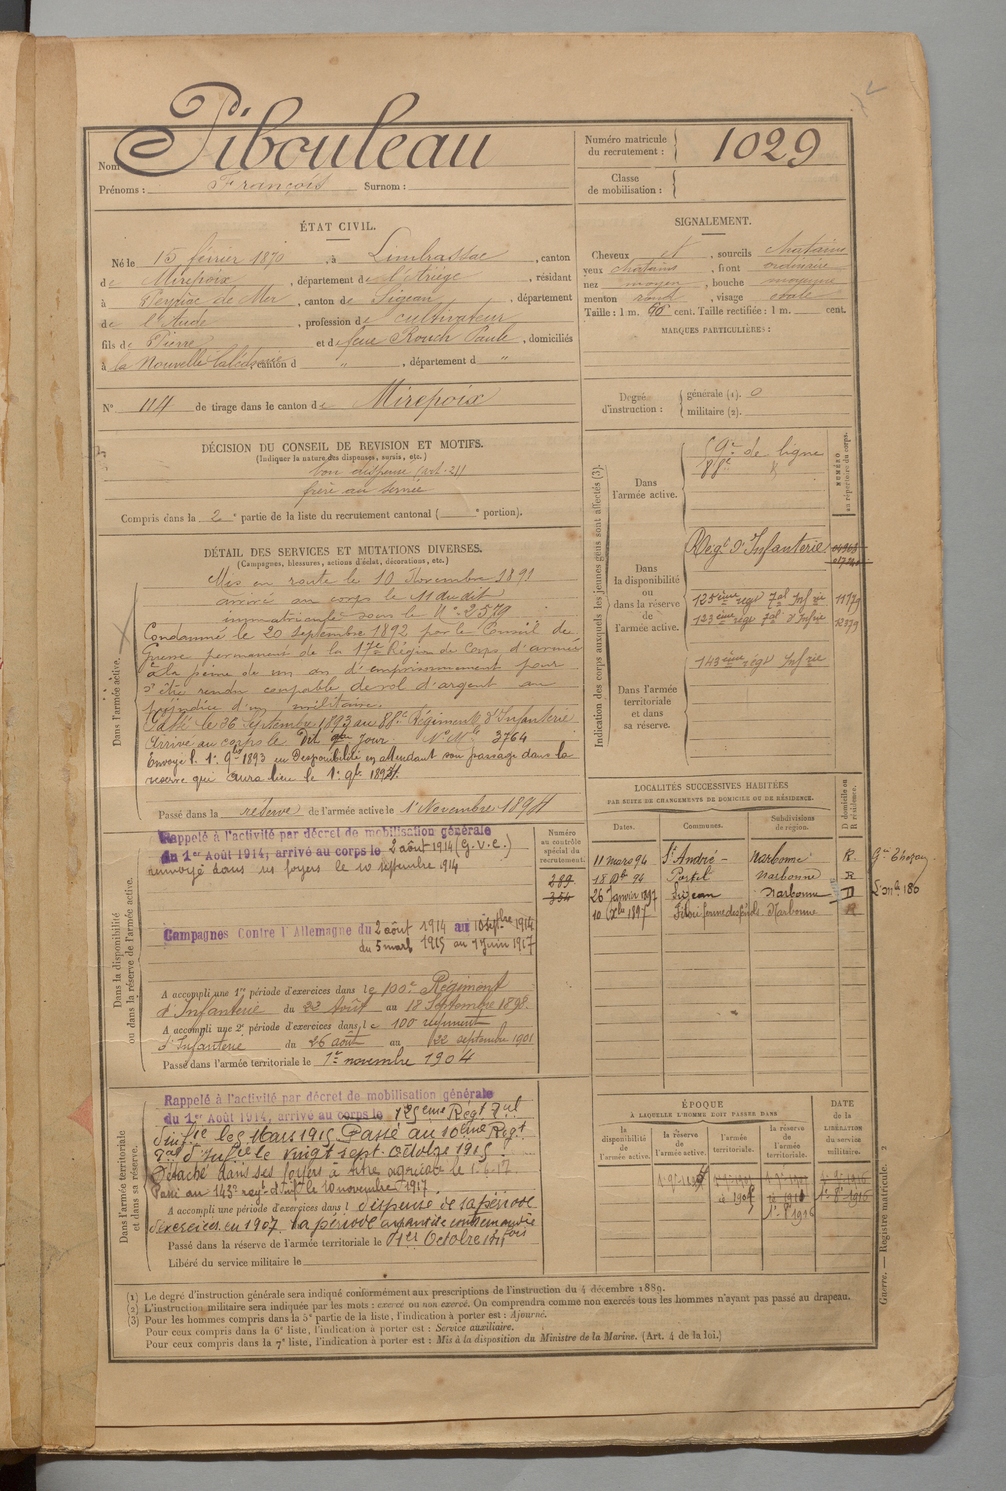 Nom Pibouleau
Prénoms : François Surnom :
Numéro matricule du recrutement : 1029
Classe de mobilisation :
ÉTAT CIVIL.
Né le 15 février 1870, à Limbrassac, canton
de Mirepoix, département de l'Ariège, résidant
à Peyriac de Mer, canton de Sigean, département
de l'Aude, profession de cultivateur
fils de Pierre et de feue Rouch Paule, domiciliés
à la Nouvelle Calédonie canton d " , département d "
N° 114 de tirage dans le canton de Mirepoix
SIGNALEMENT.
Cheveux et, sourcils chatains
yeux chatains, front ordinaire
nez moyen, bouche moyenne
menton rond, visage ovale
Taille : 1 m. 66 cent. Taille rectifiée : 1 m. cent.
MARQUES PARTICULIÈRES :
Degré d'instruction : générale (1). 0
militaire (2).
DÉCISION DU CONSEIL DE REVISION ET MOTIFS.
(Indiquer la nature des dispenses, sursis, etc.)
bon dispensé (art. 21)
frère au service
Compris dans la 2e partie de la liste du recrutement cantonal ( e portion).
DÉTAIL DES SERVICES ET MUTATIONS DIVERSES.
(Campagnes, blessures, actions d'éclat, décorations, etc.)
Dans l'armée active.
Mis en route le 10 Novembre 1891
arrivé au corps le 11 du dit
immatriculé sous le N° 2579
Condamné le 20 septembre 1892 par le Conseil de
Guerre permanent de la 17e Région de Corps d'armée
à la peine de un an d'emprisonnement pour
s'être rendu coupable de vol d'argent au
préjudice d'un militaire.
Passé le 26 Septembre 1893 au 88e Régiment d'Infanterie
Arrivé au corps le Dit jour N° Mle 3764
Envoyé l. 1er 9bre 1893 en Disponibilité en attendant son passage dans la
réserve qui aura lieu le 1er 9bre 1894.
Passé dans la réserve de l'armée active le 1er Novembre 1894
Dans la disponibilité ou dans la réserve de l'armée active.
Rappelé à l'activité par décret de mobilisation générale
du 1er Août 1914, arrivé au corps le 2 août 1914 (G.V.C.)
renvoyé dans ses foyers le 10 septembre 1914
Campagnes Contre l'Allemagne du 2 août 1914 au 10 septbre 1914
du 5 mars 1915 au 1 Juin 1917
A accompli une 1re période d'exercices dans le 100e Régiment
d'Infanterie du 22 Août au 18 Septembre 1898.
A accompli une 2e période d'exercices dans le 100 régiment
d'Infanterie du 26 août au 22 septembre 1901
Passé dans l'armée territoriale le 1er novembre 1904
Numéro au contrôle spécial du recrutement.
289
354
Dans l'armée territoriale et dans sa réserve.
Rappelé à l'activité par décret de mobilisation générale
du 1er Août 1914, arrivé au corps le 125eme Régt Tal
d'Infie le 5 Mars 1915. Passé au 10eme Régt
Tal d'Infie le vingt sept octobre 1915.
Détaché dans ses foyers à titre agricole le 1-6-17
Passé au 143e rég. d'Inf. le 10 novembre 1917
A accompli une période d'exercices dans l dispensé de sa période
d'exercices en 1907
Passé dans la réserve de l'armée territoriale le 1er Octobre
Libéré du service militaire le
Indication des corps auxquels les jeunes gens sont affectés (3).
NUMÉRO au répertoire du corps.
Dans l'armée active.
9e de ligne
88e
Dans la disponibilité ou dans la réserve de l'armée active.
Régt d'Infanterie
125ème régt Tal Infie 11179
123ème régt Tal d'Infie 12379
Dans l'armée territoriale et dans sa réserve.
143ème régt Infie
LOCALITÉS SUCCESSIVES HABITÉES
PAR SUITE DE CHANGEMENTS DE DOMICILE OU DE RÉSIDENCE.
Dates. Communes. Subdivisions de région. D domicile ou R résidence.
11 mars 94 St André - Narbonne R.
18 Xbre 94 Portel Narbonne R
26 Janvier 1897 Sigean Narbonne D
10 Xbre 1897 Narbonne R
ÉPOQUE
À LAQUELLE L'HOMME DOIT PASSER DANS
la disponibilité de l'armée active.
la réserve de l'armée active.
l'armée territoriale.
la réserve de l'armée territoriale.
DATE de la LIBÉRATION du service militaire.
Guerre. — Registre matricule. 2
(1) Le degré d'instruction générale sera indiqué conformément aux prescriptions de l'instruction du 4 décembre 1889.
(2) L'instruction militaire sera indiquée par les mots : exercé ou non exercé. On comprendra comme non exercés tous les hommes n'ayant pas passé au drapeau.
(3) Pour les hommes compris dans la 5e partie de la liste, l'indication à porter est : Ajourné.
Pour ceux compris dans la 6e liste, l'indication à porter est : Service auxiliaire.
Pour ceux compris dans la 7e liste, l'indication à porter est : Mis à la disposition du Ministre de la Marine. (Art. 4 de la loi.)